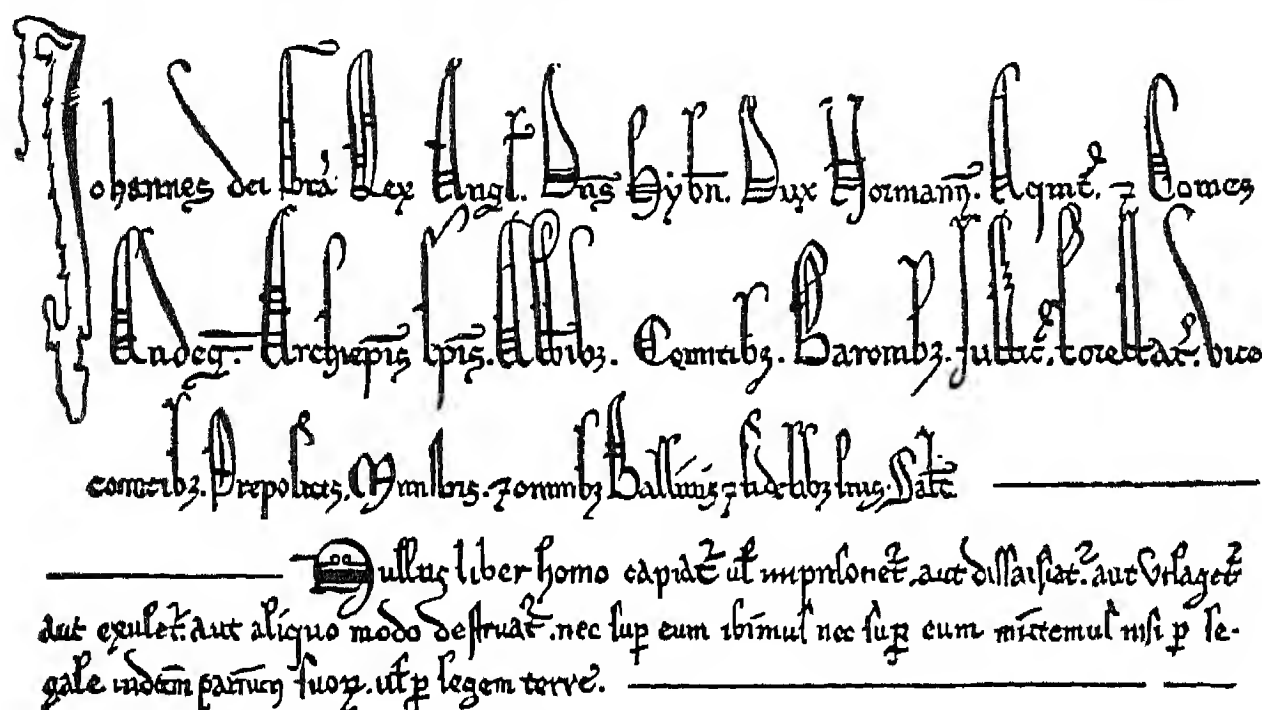 Johannes dei gra Rex Angl. Dns Hybn. Dux Normann. Aquit. ⁊ Comes
Andeg. Archiepis Epis. Abbibz. Comitibz. Baronibz. Justic. Forestar. vice
comitibz. Prepositis. Ministris. ⁊ omnibz Ballivis ⁊ fidelibz suis. Salt
Nullus liber homo capiat' ul' imprisonet'. aut dissaisiat'. aut Utlaget'
aut exulet'. aut aliquo modo destruat'. nec sup eum ibimus nec sup eum mittemus nisi p le-
gale iudem parium suoꝝ. ul' p legem terre.